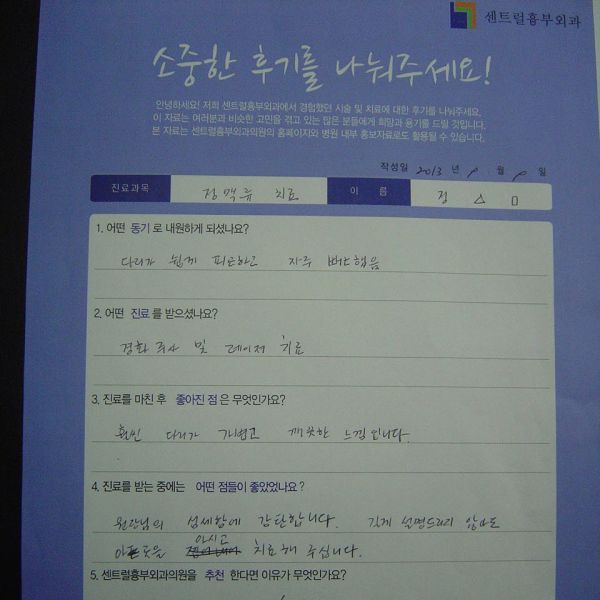 센트럴흉부외과
소중한 후기를 나눠주세요!
안녕하세요! 저희 센트럴흉부외과에서 경험했던 시술 및 치료에 대한 후기를 나눠주세요.
이 자료는 여러분과 비슷한 고민을 겪고 있는 많은 분들에게 희망과 용기를 드릴 것입니다.
본 자료는 센트럴흉부외과의원의 홈페이지와 병원 내부 홍보자료로도 활용될 수 있습니다.
작성일 2013 년 월 일
진료과목 정맥류 치료 이 름 정 △ □
1. 어떤 동기로 내원하게 되셨나요?
다리가 쉽게 피곤하고 자주 뻐근했음
2. 어떤 진료를 받으셨나요?
경화 주사 및 레이저 치료
3. 진료를 마친 후 좋아진 점은 무엇인가요?
훨씬 다리가 가볍고 깨끗한 느낌입니다.
4. 진료를 받는 중에는 어떤 점들이 좋았었나요?
원장님의 섬세함에 감탄합니다. 길게 설명드리지 않아도
아픈곳을 아시고 치료해 주십니다.
5. 센트럴흉부외과의원을 추천 한다면 이유가 무엇인가요?